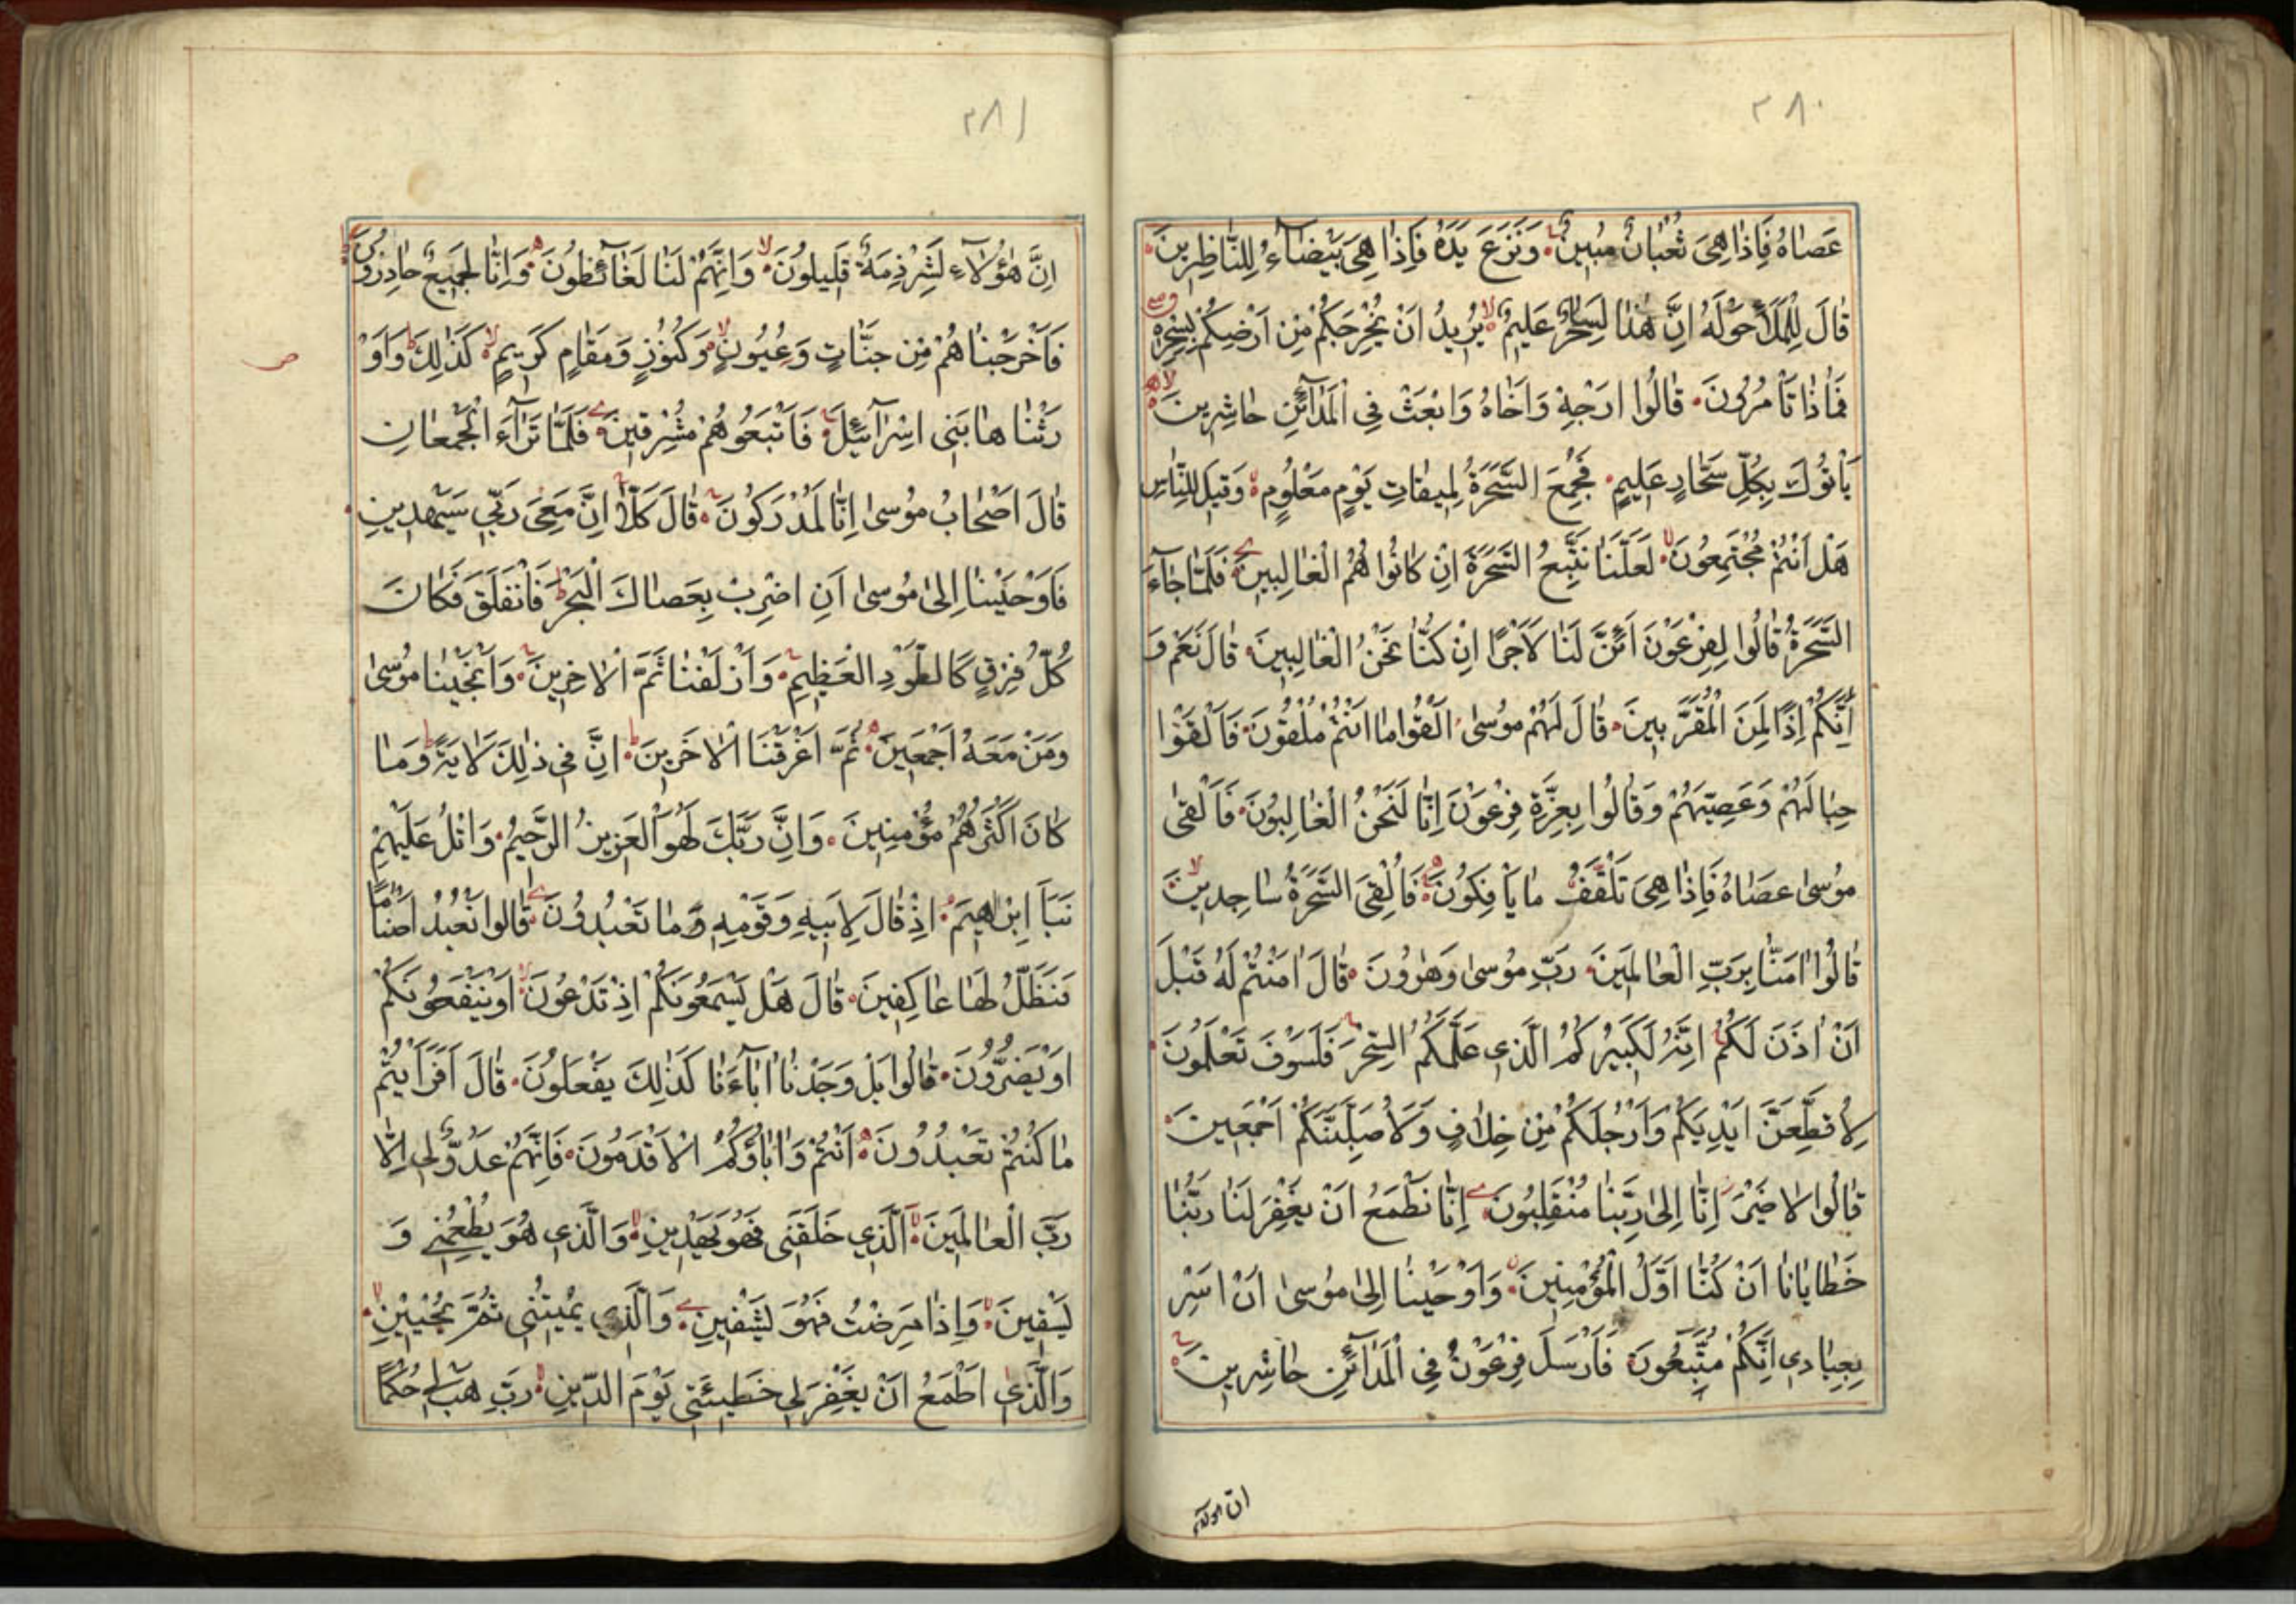 ٢٨٠
عَصَاهُ فَاِذَا هِیَ ثُعْبَانٌ مُبِینٌ وَنَزَعَ یَدَهُ فَاِذَا هِیَ بَیْضَآءُ لِلنَّاظِرِینَ
قَالَ لِلْمَلَأِ حَوْلَهُ اِنَّ هٰذَا لَسَاحِرٌ عَلِیمٌ یُرِیدُ اَنْ یُخْرِجَكُمْ مِنْ اَرْضِكُمْ بِسِحْرِهِ
فَمَاذَا تَأْمُرُونَ قَالُوا اَرْجِهْ وَاَخَاهُ وَابْعَثْ فِی الْمَدَآئِنِ حَاشِرِینَ
یَأْتُوكَ بِكُلِّ سَحَّارٍ عَلِیمٍ فَجُمِعَ السَّحَرَةُ لِمِیقَاتِ یَوْمٍ مَعْلُومٍ وَقِیلَ لِلنَّاسِ
هَلْ اَنْتُمْ مُجْتَمِعُونَ لَعَلَّنَا نَتَّبِعُ السَّحَرَةَ اِنْ كَانُوا هُمُ الْغَالِبِینَ فَلَمَّا جَآءَ
السَّحَرَةُ قَالُوا لِفِرْعَوْنَ اَئِنَّ لَنَا لَاَجْرًا اِنْ كُنَّا نَحْنُ الْغَالِبِینَ قَالَ نَعَمْ وَ
اِنَّكُمْ اِذًا لَمِنَ الْمُقَرَّبِینَ قَالَ لَهُمْ مُوسٰی اَلْقُوا مَا اَنْتُمْ مُلْقُونَ فَاَلْقَوْا
حِبَالَهُمْ وَعَصِیَّهُمْ وَقَالُوا بِعِزَّةِ فِرْعَوْنَ اِنَّا لَنَحْنُ الْغَالِبُونَ فَاَلْقٰی
مُوسٰی عَصَاهُ فَاِذَا هِیَ تَلْقَفُ مَا یَأْفِكُونَ فَاُلْقِیَ السَّحَرَةُ سَاجِدِینَ
قَالُوا اٰمَنَّا بِرَبِّ الْعَالَمِینَ رَبِّ مُوسٰی وَهٰرُونَ قَالَ اٰمَنْتُمْ لَهُ قَبْلَ
اَنْ اٰذَنَ لَكُمْ اِنَّهُ لَكَبِیرُكُمُ الَّذِی عَلَّمَكُمُ السِّحْرَ فَلَسَوْفَ تَعْلَمُونَ
لَاُقَطِّعَنَّ اَیْدِیَكُمْ وَاَرْجُلَكُمْ مِنْ خِلَافٍ وَلَاُصَلِّبَنَّكُمْ اَجْمَعِینَ
قَالُوا لَا ضَیْرَ اِنَّا اِلٰی رَبِّنَا مُنْقَلِبُونَ اِنَّا نَطْمَعُ اَنْ یَغْفِرَ لَنَا رَبُّنَا
خَطَایَانَا اَنْ كُنَّا اَوَّلَ الْمُؤْمِنِینَ وَاَوْحَیْنَا اِلٰی مُوسٰی اَنْ اَسْرِ
بِعِبَادِی اِنَّكُمْ مُتَّبَعُونَ فَاَرْسَلَ فِرْعَوْنُ فِی الْمَدَآئِنِ حَاشِرِینَ
ان هؤلاء
٢٨١
اِنَّ هٰؤُلَآءِ لَشِرْذِمَةٌ قَلِیلُونَ وَاِنَّهُمْ لَنَا لَغَآئِظُونَ وَاِنَّا لَجَمِیعٌ حَاذِرُونَ
فَاَخْرَجْنَاهُمْ مِنْ جَنَّاتٍ وَعُیُونٍ وَكُنُوزٍ وَمَقَامٍ كَرِیمٍ كَذٰلِكَ وَاَوْ
رَثْنَاهَا بَنِی اِسْرَآئِیلَ فَاَتْبَعُوهُمْ مُشْرِقِینَ فَلَمَّا تَرَآءَ الْجَمْعَانِ
قَالَ اَصْحَابُ مُوسٰی اِنَّا لَمُدْرَكُونَ قَالَ كَلَّا اِنَّ مَعِیَ رَبِّی سَیَهْدِینِ
فَاَوْحَیْنَا اِلٰی مُوسٰی اَنِ اضْرِبْ بِعَصَاكَ الْبَحْرَ فَانْفَلَقَ فَكَانَ
كُلُّ فِرْقٍ كَالطَّوْدِ الْعَظِیمِ وَاَزْلَفْنَا ثَمَّ الْاٰخَرِینَ وَاَنْجَیْنَا مُوسٰی
وَمَنْ مَعَهُ اَجْمَعِینَ ثُمَّ اَغْرَقْنَا الْاٰخَرِینَ اِنَّ فِی ذٰلِكَ لَاٰیَةً وَمَا
كَانَ اَكْثَرُهُمْ مُؤْمِنِینَ وَاِنَّ رَبَّكَ لَهُوَ الْعَزِیزُ الرَّحِیمُ وَاتْلُ عَلَیْهِمْ
نَبَأَ اِبْرٰهِیمَ اِذْ قَالَ لِاَبِیهِ وَقَوْمِهِ مَا تَعْبُدُونَ قَالُوا نَعْبُدُ اَصْنَامًا
فَنَظَلُّ لَهَا عَاكِفِینَ قَالَ هَلْ یَسْمَعُونَكُمْ اِذْ تَدْعُونَ اَوْ یَنْفَعُونَكُمْ
اَوْ یَضُرُّونَ قَالُوا بَلْ وَجَدْنَا اٰبَآءَنَا كَذٰلِكَ یَفْعَلُونَ قَالَ اَفَرَاَیْتُمْ
مَا كُنْتُمْ تَعْبُدُونَ اَنْتُمْ وَاٰبَاؤُكُمُ الْاَقْدَمُونَ فَاِنَّهُمْ عَدُوٌّ لِی اِلَّا
رَبَّ الْعَالَمِینَ اَلَّذِی خَلَقَنِی فَهُوَ یَهْدِینِ وَالَّذِی هُوَ یُطْعِمُنِی وَ
یَسْقِینِ وَاِذَا مَرِضْتُ فَهُوَ یَشْفِینِ وَالَّذِی یُمِیتُنِی ثُمَّ یُحْیِینِ
وَالَّذِی اَطْمَعُ اَنْ یَغْفِرَ لِی خَطِیئَتِی یَوْمَ الدِّینِ رَبِّ هَبْ لِی حُكْمًا